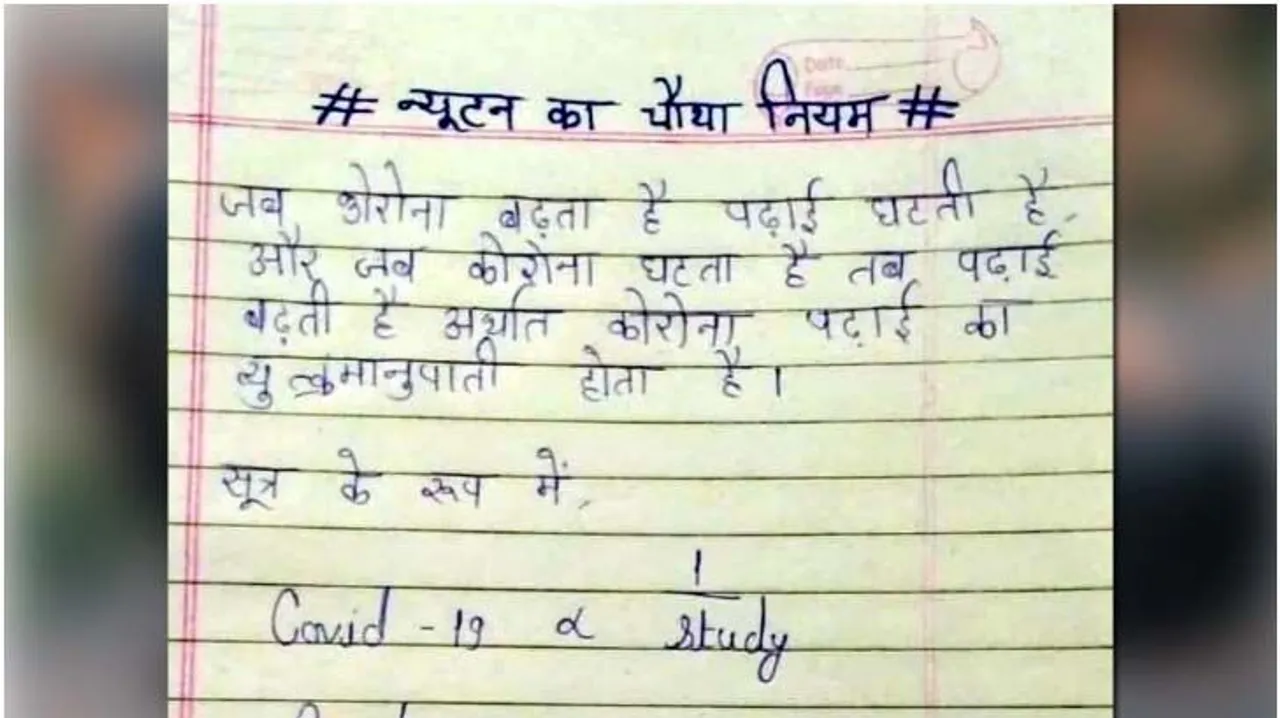 Date
Page
# न्यूटन का चौथा नियम #
जब कोरोना बढ़ता है पढ़ाई घटती है,
और जब कोरोना घटता है तब पढ़ाई
बढ़ती है अर्थात कोरोना पढ़ाई का
व्युत्क्रमानुपाती होता है।
सूत्र के रूप में,
Covid-19 ∝ 1
study